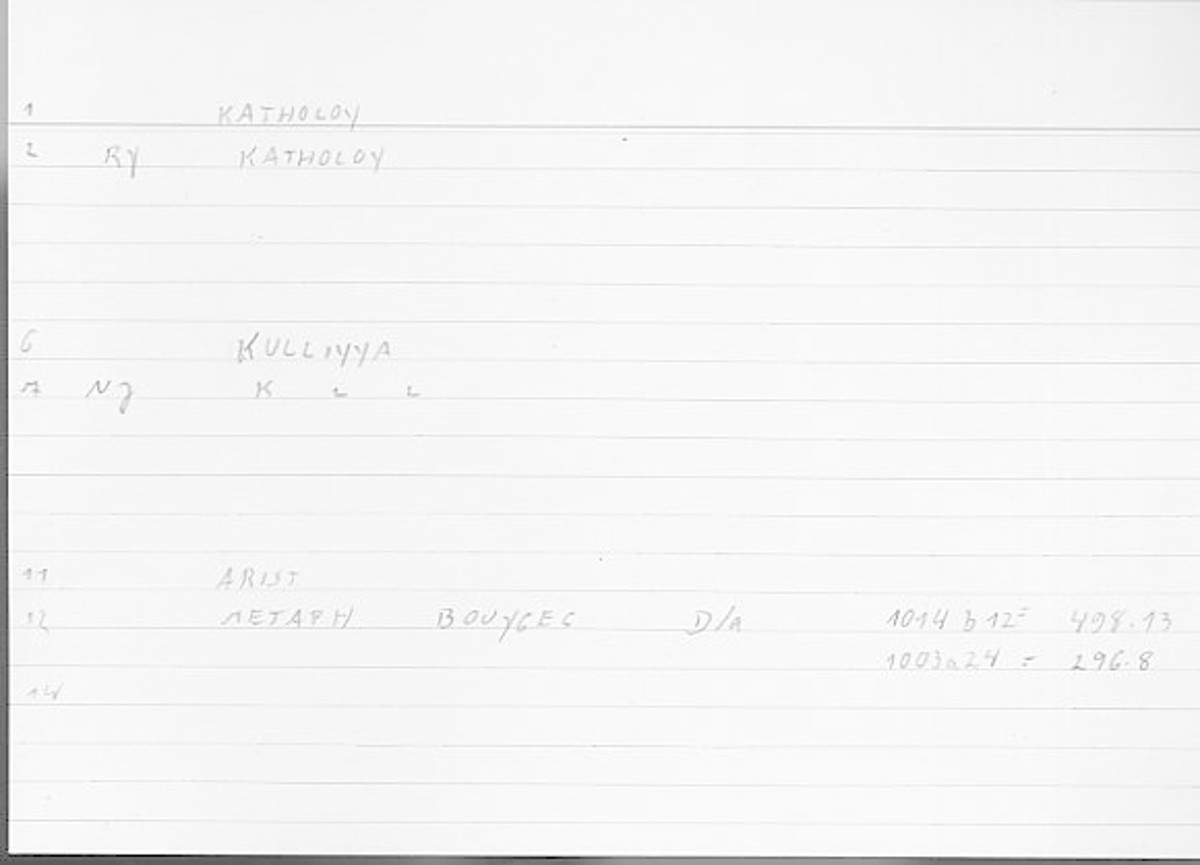 1 KATHOLOY
2 RY KATHOLOY
6 KULLIYYA
7 NJ K L L
11 ARIST
12 METAPH BOUYGES D/a 1014 b 12 = 498.13
1003a24 = 296.8
14